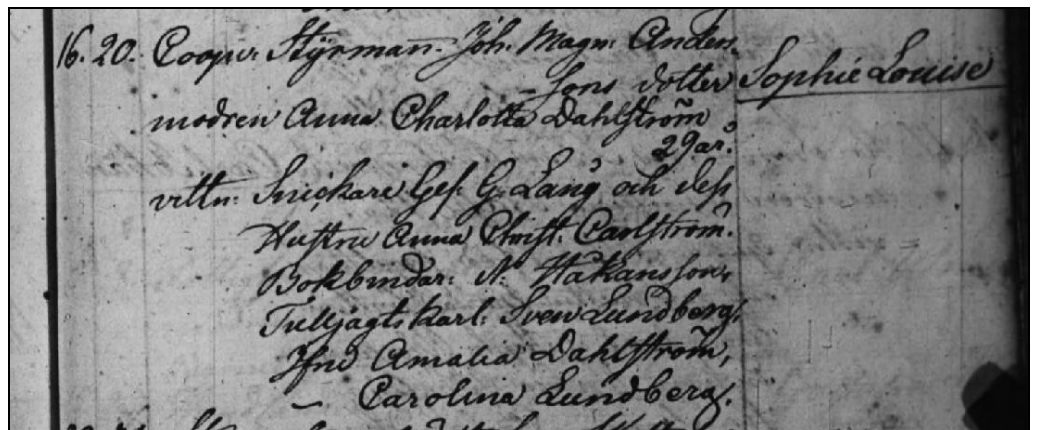 16. 20. Coopv: Styrman Joh. Magn: Anders-
sons dotter Sophie Louise
modren Anna Charlotta Dahlström
29 år.
vittn: Snickare Ges: G. Lang och dess
Hustru Anna Christ. Carlström.
Bokbindar: N. Håkansson,
Tulljagts karl: Sven Lundberg,
Jfru Amalia Dahlström,
— Carolina Lundberg.